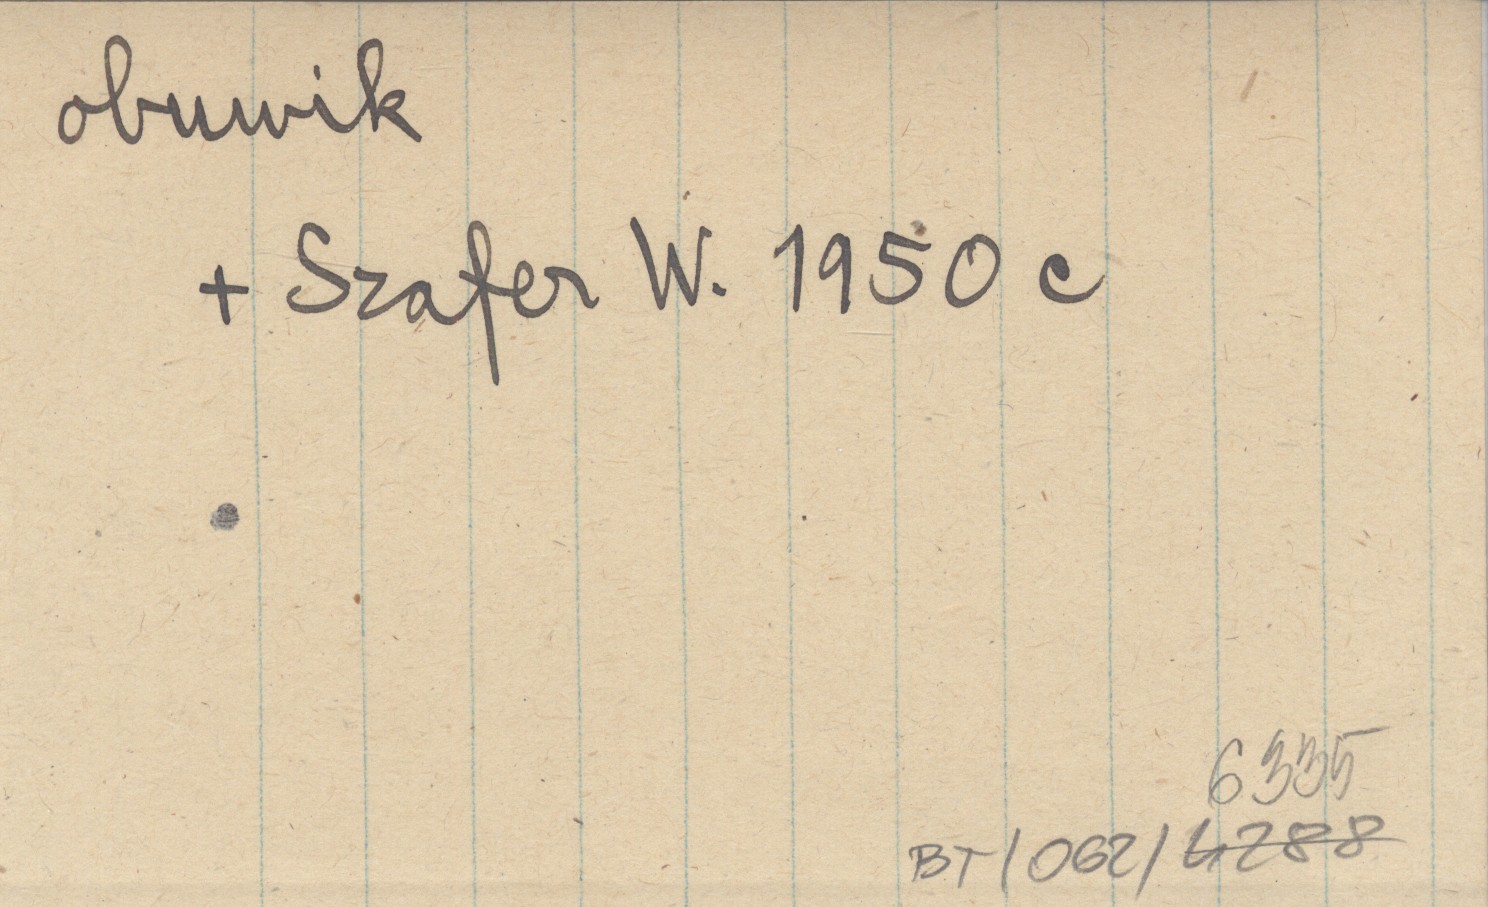 obuwik
+ Szafer W. 1950 c
6335
BT/062/4288